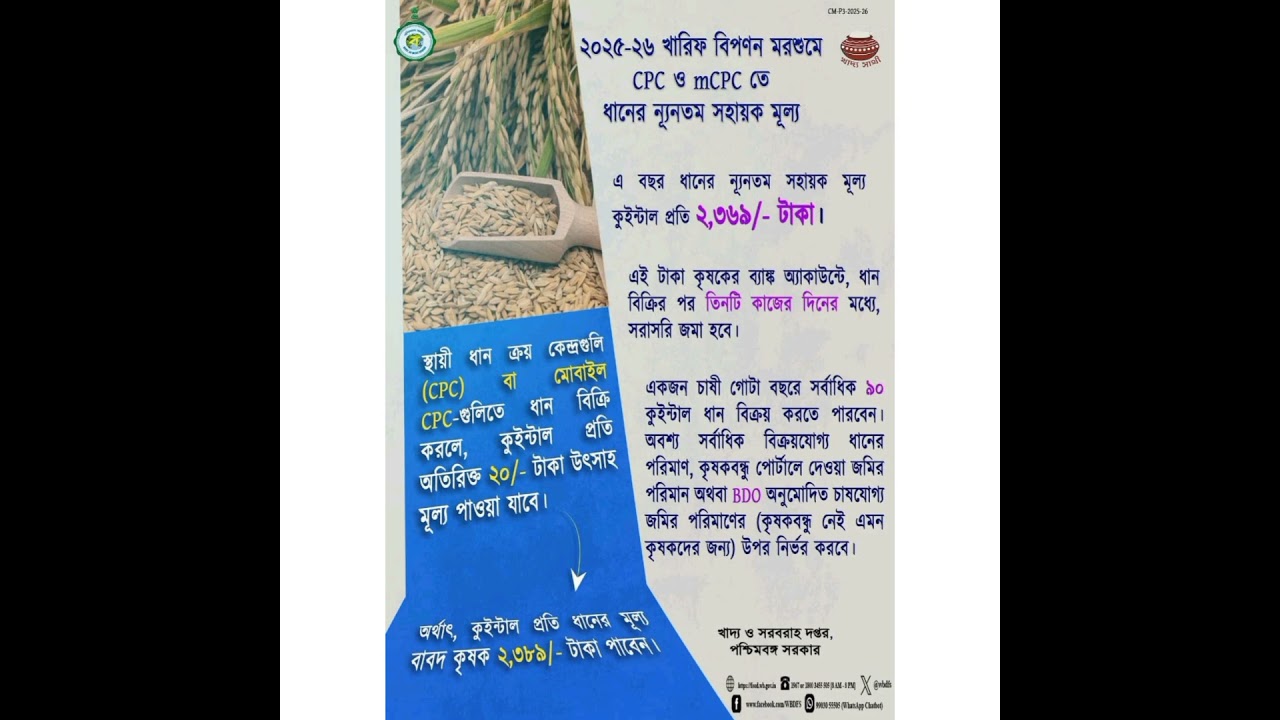 CM-P3-2025-26
২০২৫-২৬ খারিফ বিপণন মরশুমে
CPC ও mCPC তে
ধানের ন্যূনতম সহায়ক মূল্য
খাদ্য সাথী
এ বছর ধানের ন্যূনতম সহায়ক মূল্য
কুইন্টাল প্রতি ২,৩৬৯/- টাকা।
এই টাকা কৃষকের ব্যাঙ্ক অ্যাকাউন্টে, ধান
বিক্রির পর তিনটি কাজের দিনের মধ্যে,
সরাসরি জমা হবে।
একজন চাষী গোটা বছরে সর্বাধিক ৯০
কুইন্টাল ধান বিক্রয় করতে পারবেন।
অবশ্য সর্বাধিক বিক্রয়যোগ্য ধানের
পরিমাণ, কৃষকবন্ধু পোর্টালে দেওয়া জমির
পরিমান অথবা BDO অনুমোদিত চাষযোগ্য
জমির পরিমাণের (কৃষকবন্ধু নেই এমন
কৃষকদের জন্য) উপর নির্ভর করবে।
স্থায়ী ধান ক্রয় কেন্দ্রগুলি
(CPC) বা মোবাইল
CPC-গুলিতে ধান বিক্রি
করলে, কুইন্টাল প্রতি
অতিরিক্ত ২০/- টাকা উৎসাহ
মূল্য পাওয়া যাবে।
অর্থাৎ, কুইন্টাল প্রতি ধানের মূল্য
বাবদ কৃষক ২,৩৮৯/- টাকা পাবেন।
খাদ্য ও সরবরাহ দপ্তর,
পশ্চিমবঙ্গ সরকার
https://food.wb.gov.in 1967 or 1800 3455 505 (8 AM - 8 PM) @wbdfs
www.facebook.com/WBDFS 99030 55505 (WhatsApp Chatbot)